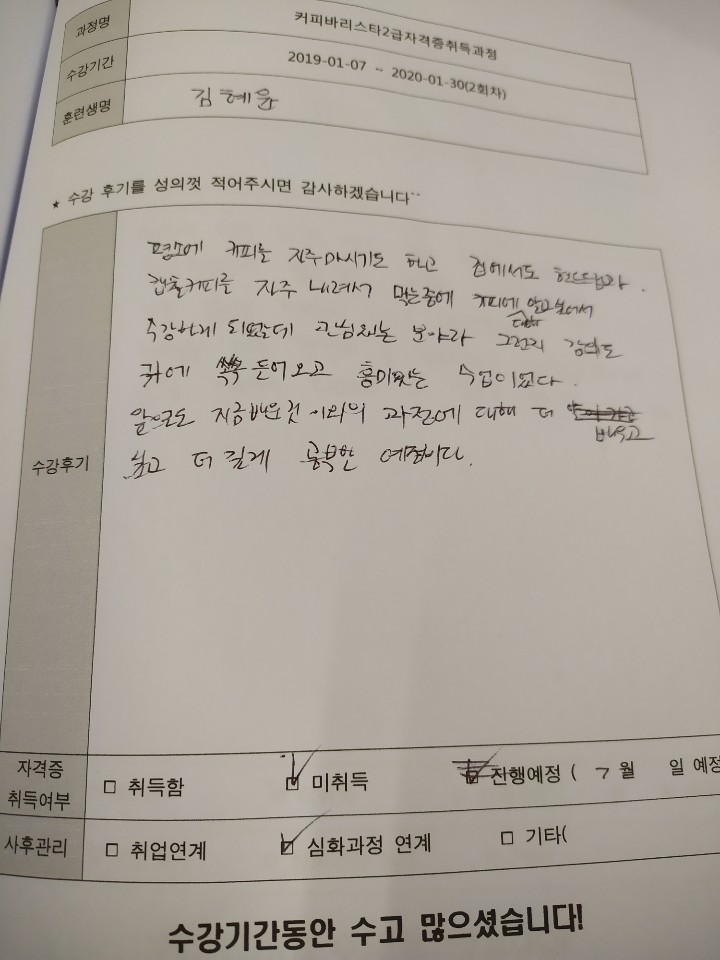 과정명 커피바리스타2급자격증취득과정
수강기간 2019-01-07 ~ 2020-01-30(2회차)
훈련생명 김혜윤
★ 수강 후기를 성의껏 적어주시면 감사하겠습니다^^
평소에 커피를 자주마시기도 하고 집에서도 핸드드립과
캡슐커피를 자주 내려서 먹는중에 커피에 대해 알고싶어서
수강하게 되었는데 관심있는 분야라 그런지 강의도
귀에 쏙쏙 들어오고 흥미있는 수업이었다.
앞으로도 지금배운것 이외의 과정에 대해 더 배우고
싶고 더 길게 공부할 예정이다.
수강후기
자격증
취득여부 □ 취득함 ☑ 미취득 □ 진행예정 ( 7월 일 예정
사후관리 □ 취업연계 ☑ 심화과정 연계 □ 기타(
수강기간동안 수고 많으셨습니다!